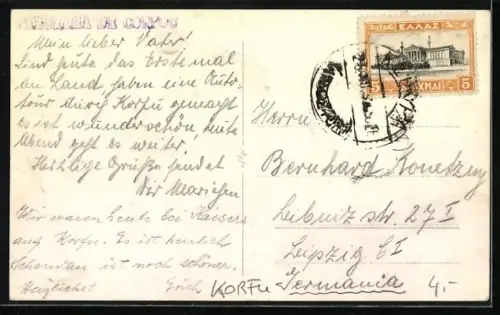 Mein lieber Vater!
Sind heute das Erstemal
an Land, haben eine Auto-
tour durch Korfu gemacht
es ist wunderschön, heute
Abend geht es weiter.
Herzliche Grüße sendet
Dir Mariechen
Wir waren heute bei Kaisers
auf Korfu. Es ist herrlich
Schandau ist noch schöner.
Herzlichst Erich
KORFU
ΕΛΛΑΣ
5 ΔΡΑΧΜΑΙ 5
Herrn
Bernhard
Leibniz str. 27 I
Leipzig C I
Germania
4,-